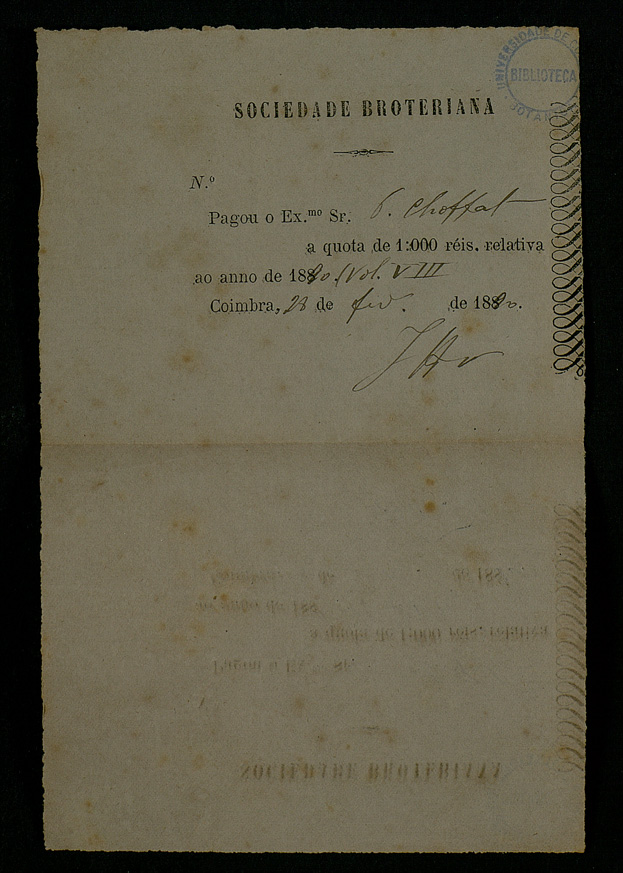 UNIVERSIDADE DE CO
BIBLIOTECA
BOTA
SOCIEDADE BROTERIANA
N.º
Pagou o Ex.mo Sr. P. Choffat
a quota de 1:000 réis, relativa
ao anno de 1890. (Vol. VIII
Coimbra, 28 de fev. de 1890.